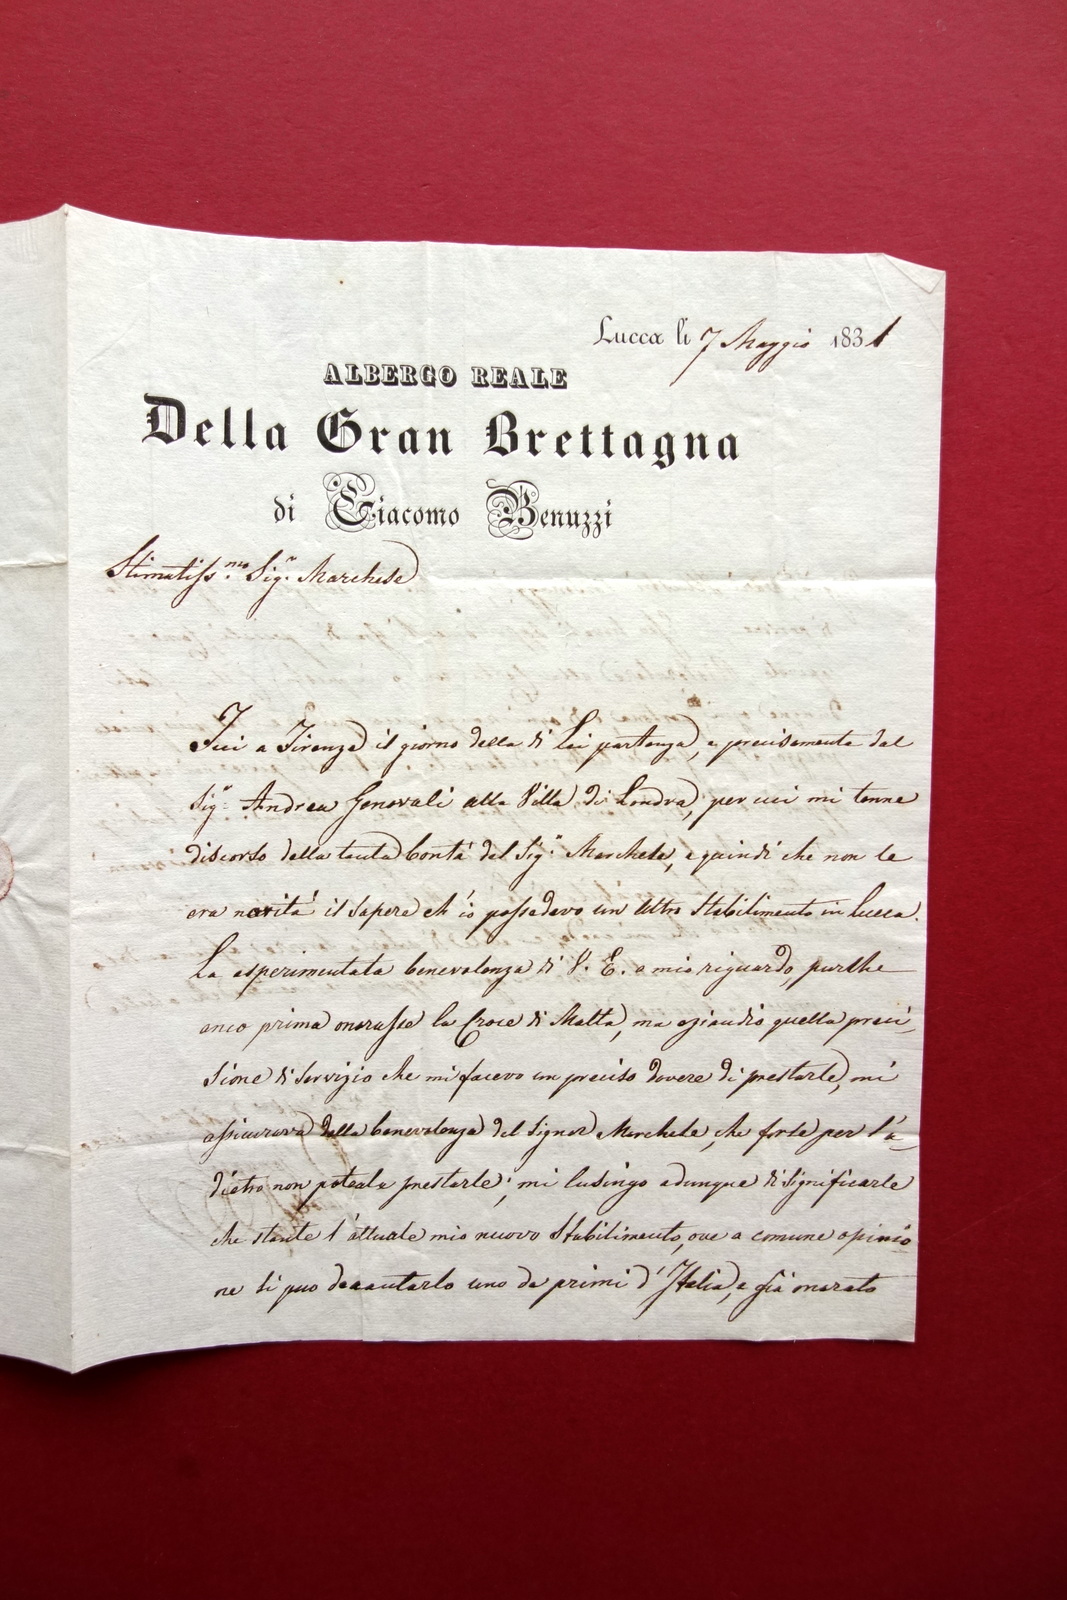 Lucca li 7 Maggio 1831
ALBERGO REALE
Della Gran Brettagna
di Giacomo Benuzzi
Stimatiss.mo Sig.r Marchese
Fui a Firenze il giorno della di Lei partenza, e precisamente dal
Sig.r Andrea Genovali alla Villa di Londra, per cui mi tenne
discorso della tanta bontà del Sig.r Marchese, e quindi che non le
era novità il sapere ch'io possedevo un altro Stabilimento in Lucca.
La esperimentata benevolenza di V. E. a mio riguardo, purche
anco prima onorasse la Croce di Malta, ma eziandio quella preci-
sione di Servizio che mi facevo un preciso dovere di prestarle, mi
assicurava della benevolenza del Signor Marchese, che forse per l'a-
dietro non potea prestarle; mi lusingo adunque di significarle
che stante l'attuale mio nuovo Stabilimento, ove a comune opinio
ne si puo decantarlo uno de primi d'Italia, e già onorato